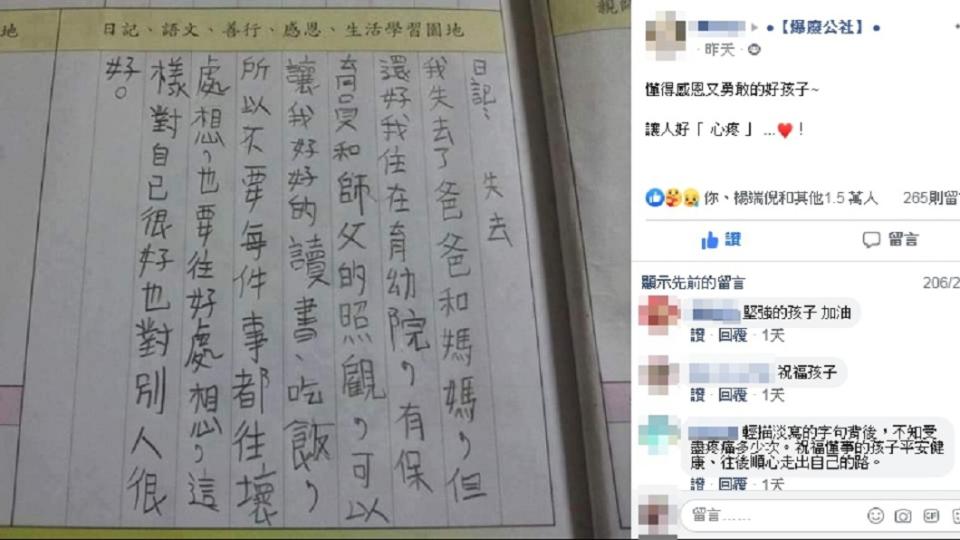 地
日記、語文、善行、感恩、生活學習園地
日記：失去
我失去了爸爸和媽媽，但
還好我住在育幼院，有保
育員和師父的照觀，可以
讓我好好的讀書、吃飯，
所以不要每件事都往壞
處想，也要往好處想，這
樣對自己很好也對別人很
好。
●【爆廢公社】●
昨天
懂得感恩又勇敢的好孩子~
讓人好「 心疼 」 ...❤️！
你、楊端倪和其他1.5 萬人
265則留
讚
留言
顯示先前的留言
206/2
堅強的孩子 加油
讚 · 回覆 · 1天
祝福孩子
讚 · 回覆 · 1天
輕描淡寫的字句背後，不知受
盡疼痛多少次。祝福懂事的孩子平安健
康、往後順心走出自己的路。
讚 · 回覆 · 1天
留言......
GIF